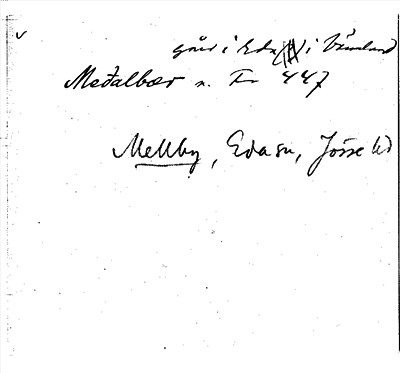 v
gård i Eda i Värmland
Meðalbær n. Fr 447
Mellby, Eda sn, Jösse hd